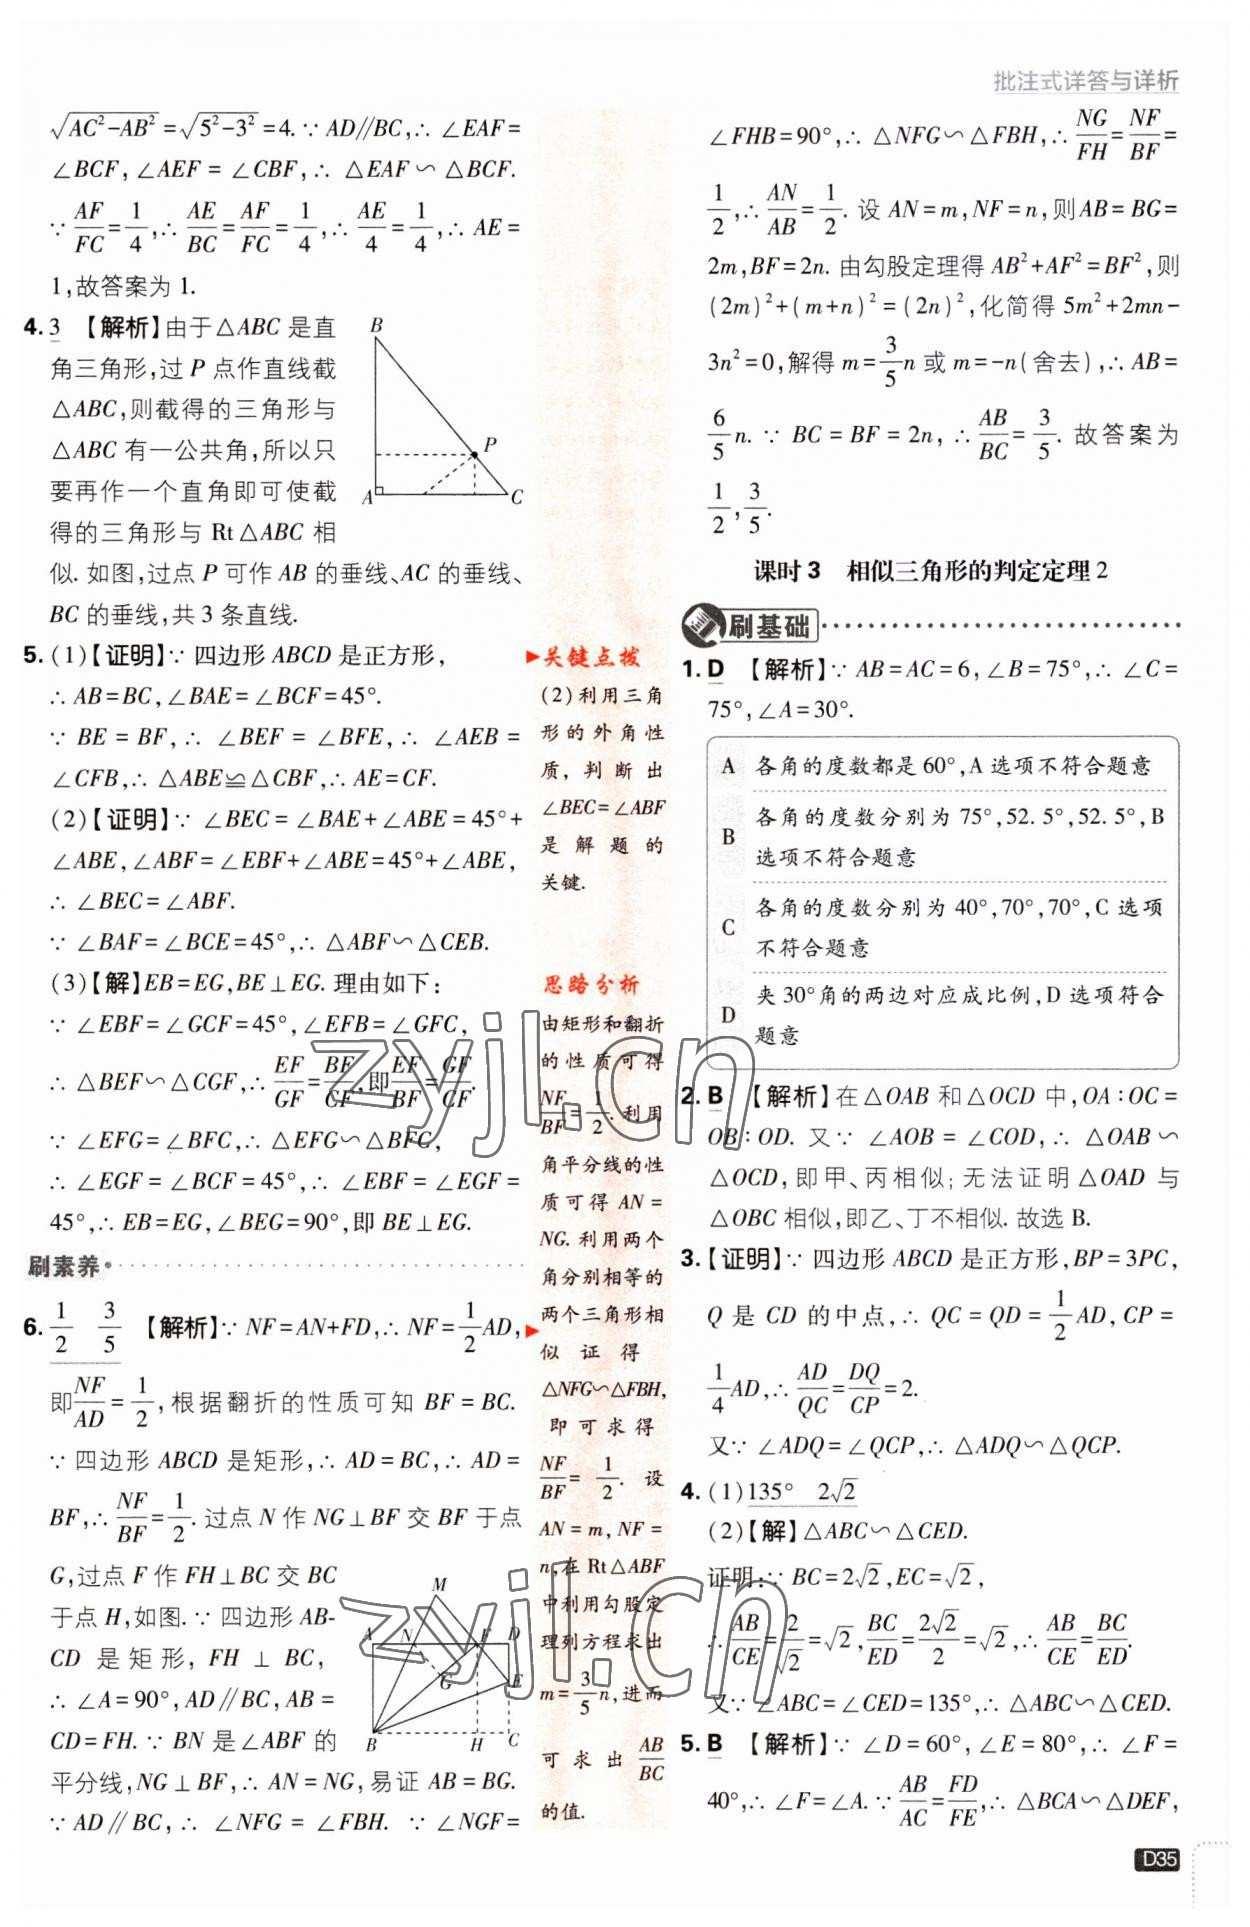 批注式详答与详析
√(AC²-AB²)=√(5²-3²)=4.∵ AD∥BC,∴ ∠EAF=
∠BCF,∠AEF = ∠CBF,∴ △EAF∽△BCF.
∵ AF/FC=1/4,∴ AE/BC=AF/FC=1/4,∴ AE/4=1/4,∴ AE=
1,故答案为 1.
4. 3 【解析】由于△ABC 是直
角三角形,过 P 点作直线截
△ABC,则截得的三角形与
△ABC 有一公共角,所以只
要再作一个直角即可使截
得的三角形与 Rt△ABC 相
似. 如图,过点 P 可作 AB 的垂线、AC 的垂线、
BC 的垂线,共 3 条直线.
B
P
A
C
5. (1)【证明】∵ 四边形 ABCD 是正方形,
∴ AB=BC,∠BAE=∠BCF=45°.
∵ BE = BF,∴ ∠BEF = ∠BFE,∴ ∠AEB =
∠CFB,∴ △ABE≌△CBF,∴ AE=CF.
(2)【证明】∵ ∠BEC=∠BAE+∠ABE=45°+
∠ABE,∠ABF=∠EBF+∠ABE=45°+∠ABE,
∴ ∠BEC=∠ABF.
∵ ∠BAF=∠BCE=45°,∴ △ABF∽△CEB.
(3)【解】EB=EG,BE⊥EG. 理由如下:
∵ ∠EBF=∠GCF=45°,∠EFB=∠GFC,
∴ △BEF∽△CGF,∴ EF/GF=BF/CF,即EF/BF=GF/CF.
∵ ∠EFG=∠BFC,∴ △EFG∽△BFC,
∴ ∠EGF = ∠BCF = 45°,∴ ∠EBF = ∠EGF =
45°,∴ EB=EG,∠BEG=90°,即 BE⊥EG.
刷素养
6. 1/2 3/5 【解析】∵ NF=AN+FD,∴ NF=1/2AD,
即NF/AD=1/2,根据翻折的性质可知 BF=BC.
∵ 四边形 ABCD 是矩形,∴ AD=BC,∴ AD=
BF,∴ NF/BF=1/2. 过点 N 作 NG⊥BF 交 BF 于点
G,过点 F 作 FH⊥BC 交 BC
于点 H,如图.∵ 四边形 AB-
CD 是矩形, FH ⊥ BC,
∴ ∠A=90°,AD∥BC,AB=
CD=FH.∵ BN 是∠ABF 的
平分线,NG⊥BF,∴ AN=NG,易证 AB=BG.
∵ AD∥BC,∴ ∠NFG = ∠FBH. ∵ ∠NGF =
M
A N F D
G E
B H C
关键点拨
(2)利用三角
形的外角性
质,判断出
∠BEC=∠ABF
是解题的
关键.
思路分析
由矩形和翻折
的性质可得
NF/BF=1/2. 利用
角平分线的性
质可得 AN=
NG. 利用两个
角分别相等的
两个三角形相
似证得
△NFG∽△FBH,
即可求得
NF/BF=1/2. 设
AN=m,NF=
n,在 Rt△ABF
中利用勾股定
理列方程求出
m=3/5n,进而
可求出AB/BC
的值.
∠FHB=90°,∴ △NFG∽△FBH,∴ NG/FH=NF/BF=
1/2,∴ AN/AB=1/2. 设 AN=m,NF=n,则AB=BG=
2m,BF=2n. 由勾股定理得 AB²+AF²=BF²,则
(2m)²+(m+n)²=(2n)²,化简得 5m²+2mn-
3n²=0,解得 m=3/5n 或 m=-n(舍去),∴ AB=
6/5n. ∵ BC = BF = 2n, ∴ AB/BC=3/5. 故答案为
1/2,3/5.
课时 3 相似三角形的判定定理 2
刷基础
1. D 【解析】∵ AB=AC=6,∠B=75°,∴ ∠C=
75°,∠A=30°.
A 各角的度数都是 60°,A 选项不符合题意
B 各角的度数分别为 75°,52.5°,52.5°,B
选项不符合题意
C 各角的度数分别为 40°,70°,70°,C 选项
不符合题意
D 夹 30°角的两边对应成比例,D 选项符合
题意
2. B 【解析】在△OAB 和△OCD 中,OA∶OC=
OB∶OD. 又∵ ∠AOB=∠COD,∴ △OAB∽
△OCD,即甲、丙相似;无法证明△OAD 与
△OBC 相似,即乙、丁不相似. 故选 B.
3. 【证明】∵ 四边形 ABCD 是正方形,BP=3PC,
Q 是 CD 的中点,∴ QC=QD=1/2AD,CP=
1/4AD,∴ AD/QC=DQ/CP=2.
又∵ ∠ADQ=∠QCP,∴ △ADQ∽△QCP.
4. (1)135° 2√2
(2)【解】△ABC∽△CED.
证明:∵ BC=2√2,EC=√2,
∴ AB/CE=2/√2=√2,BC/ED=2√2/2=√2,∴ AB/CE=BC/ED.
又∵ ∠ABC=∠CED=135°,∴ △ABC∽△CED.
5. B 【解析】∵ ∠D=60°,∠E=80°,∴ ∠F=
40°,∴ ∠F=∠A.∵ AB/AC=FD/FE,∴ △BCA∽△DEF,
D35
zyjl.cn
zyjl.cn